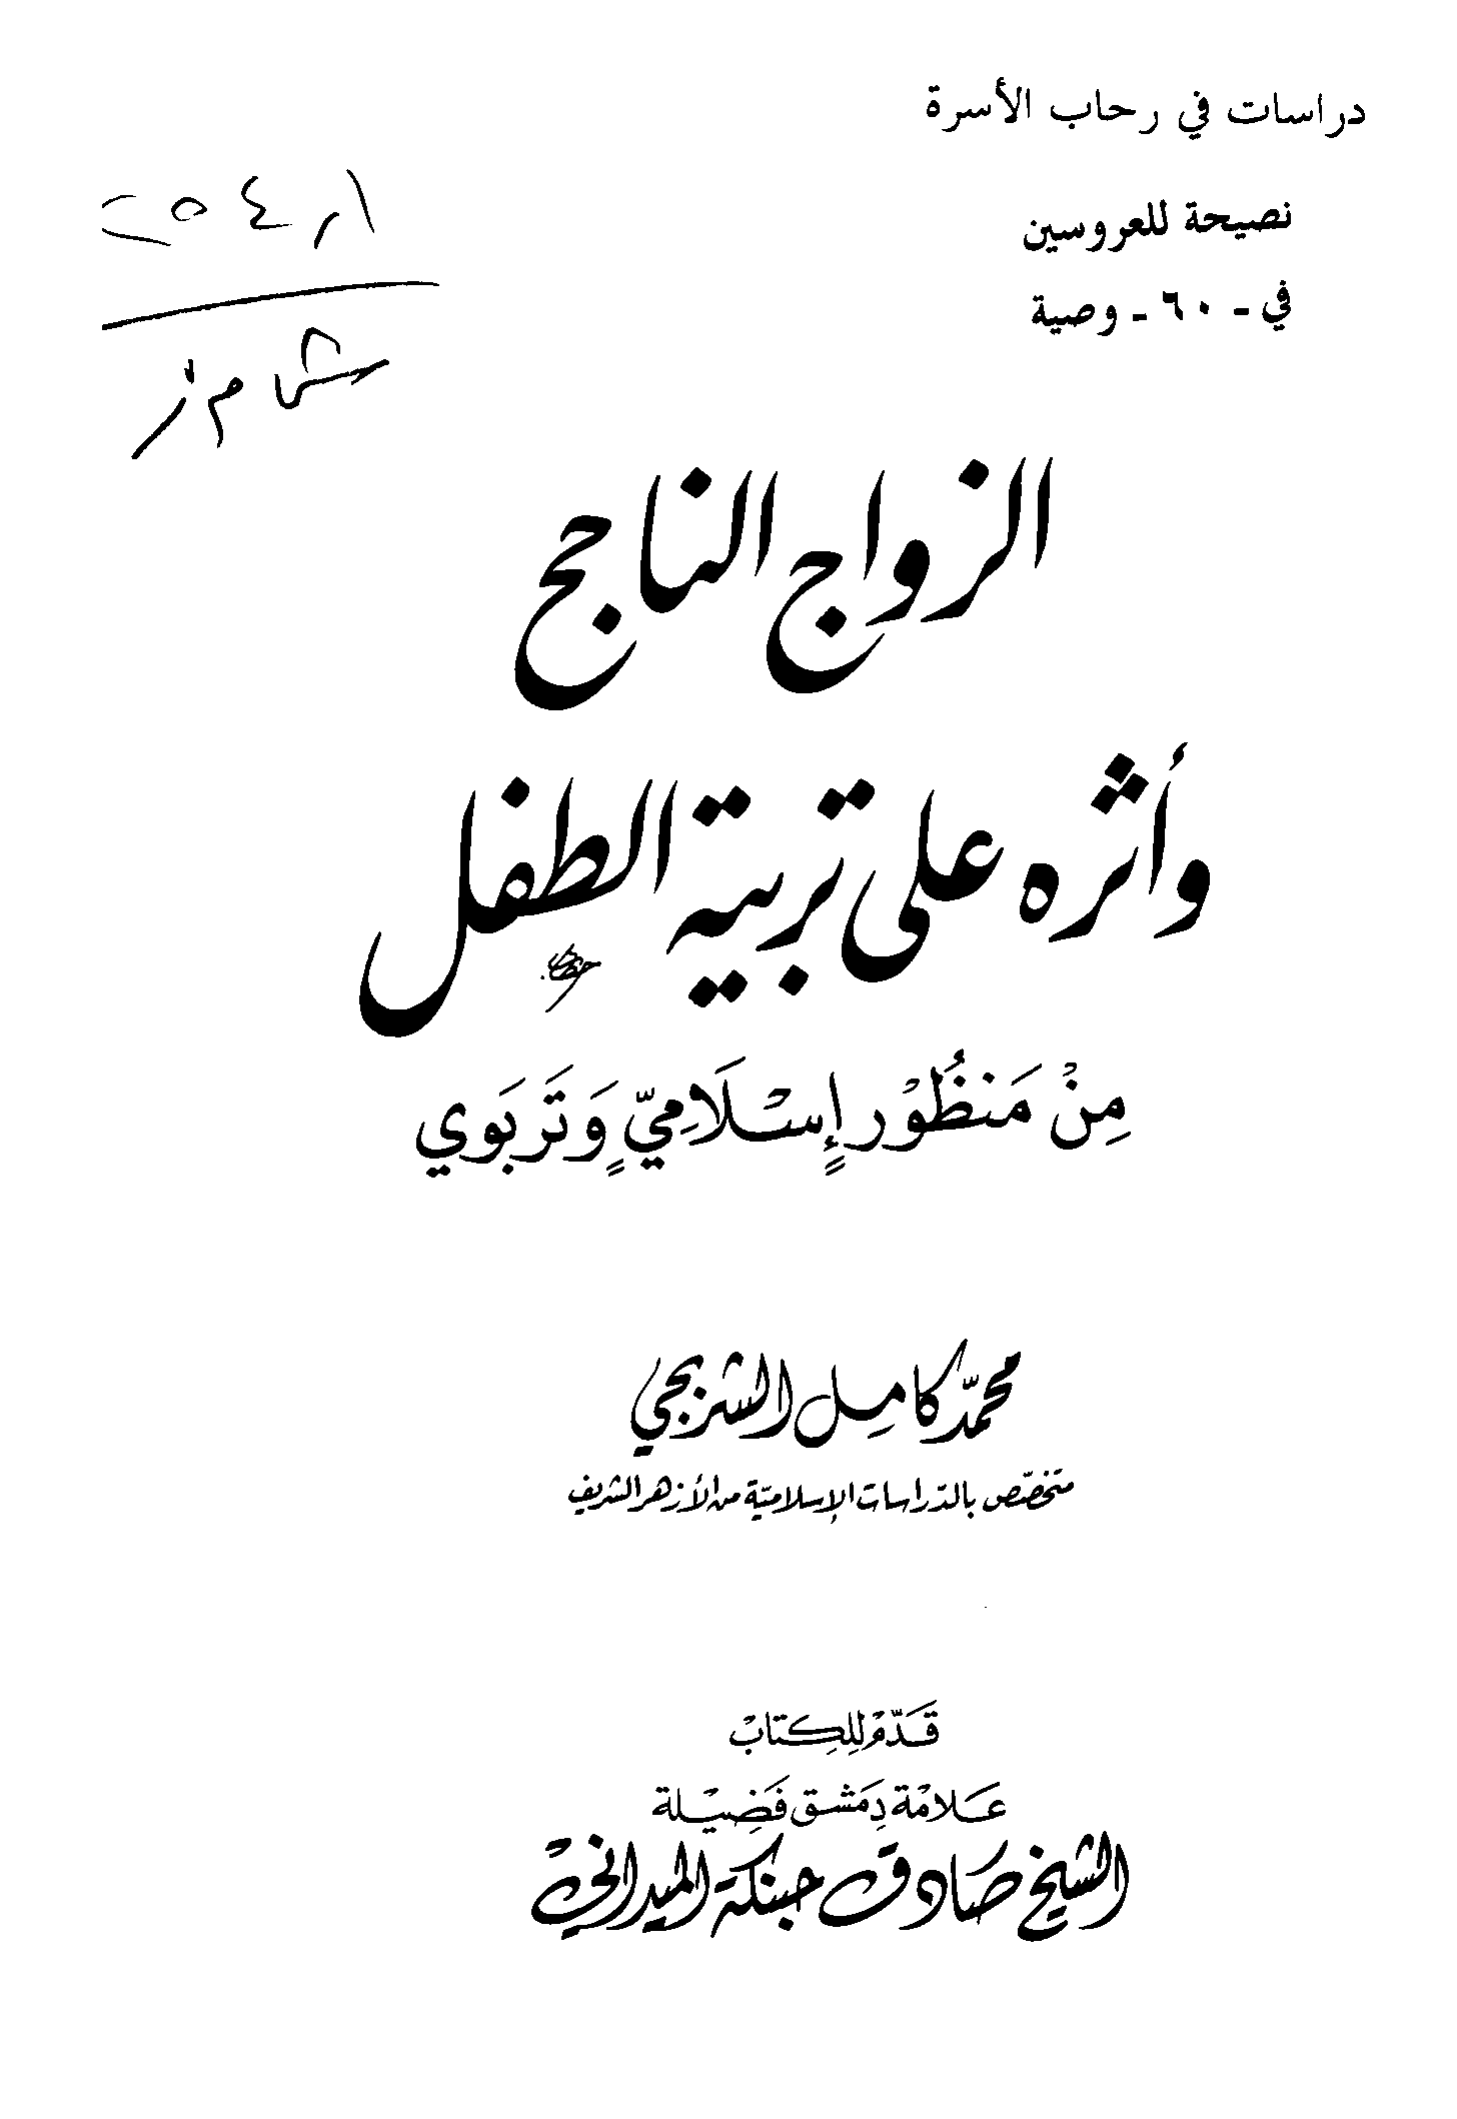 دراسات في رحاب الأسرة
نصيحة للعروسين
في - ٦٠ - وصية
الزواج الناجح
وأثره على تربية الطفل
مِنْ مَنظُوْرٍ إِسْلَامِيٍّ وَتَربَوي
محمّد كامل الشربجي
متخصّص بالدّراسات الإسلاميّة من الأزهر الشريف
قَدَّمْ لِلكِتابْ
عَلامْة دِمَشق فَضِيْلة
الشيخ صَادق حبنكة الميداني